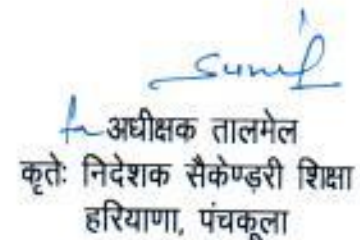 Sunil
अधीक्षक तालमेल
कृतेः निदेशक सैकेण्ड़री शिक्षा
हरियाणा, पंचकूला